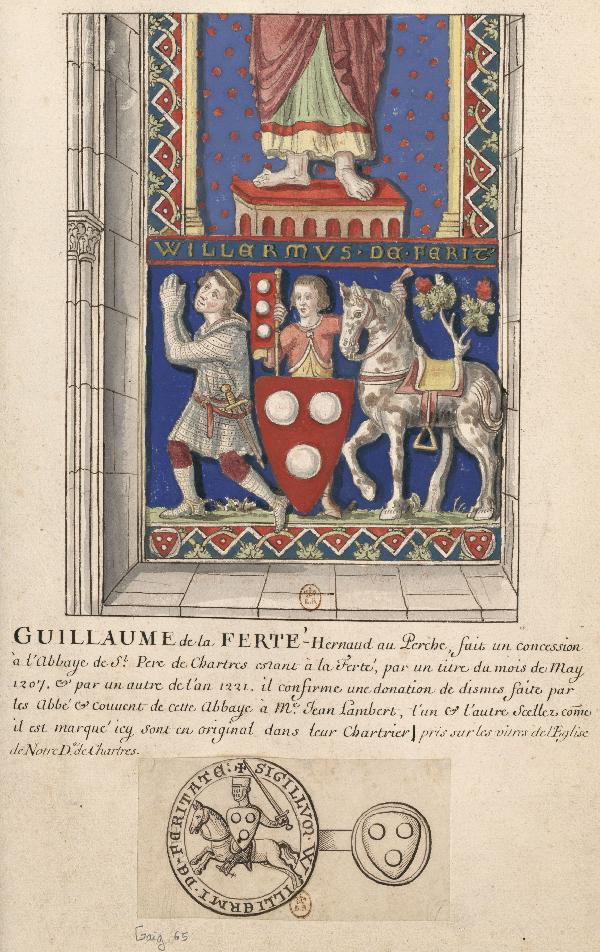 WILLERMVS · DE · FERIT
GUILLAUME de la FERTÉ-Hernaud au Perche, fait un concession
à l'Abbaye de St. Pere de Chartres estant à la Ferté, par un titre du mois de May
1207, & par un autre de l'an 1221. il confirme une donation de dismes, faite par
les Abbé & Couvent de cette Abbaye à Me. Jean Lambert, l'un & l'autre Scellez come
il est marqué icy sont en original dans leur Chartrier] pris sur les vitres de l'Eglise
de Notre De. de Chartres.
✠ SIGILLVM · WILLERMI · DE · FERITATE :
Gaig. 65